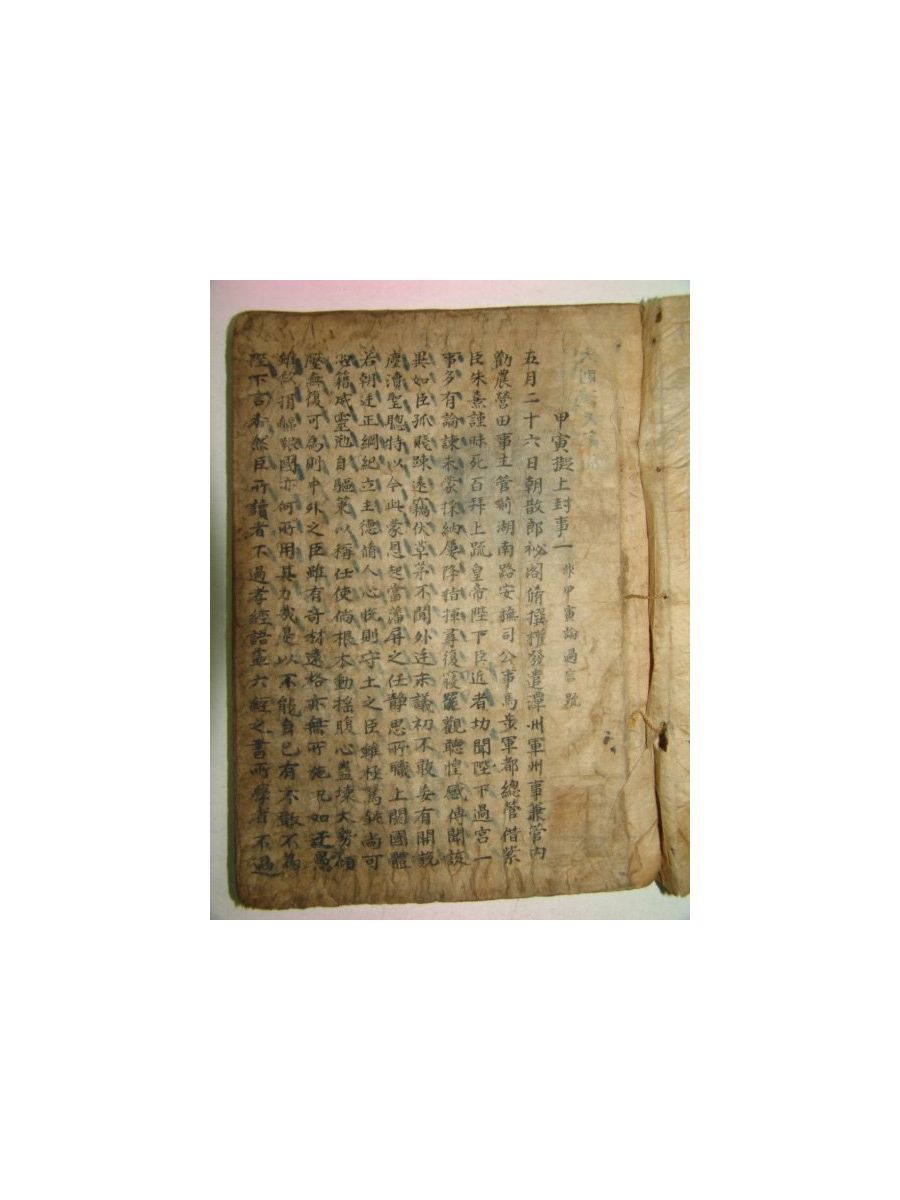 甲寅擬上封事一
五月二十六日朝散郎祕閣脩撰權發遣潭州軍州事兼管內
勸農營田事主管荊湖南路安撫司公事馬步軍都總管借紫
臣朱熹謹昧死百拜上疏皇帝陛下臣近者切聞陛下過宮一
事多有論諫未蒙採納屢降指揮尋復寢罷觀聽惶惑傳聞該
異如臣孤賤踈遠竊伏草茅不聞外廷末議初不敢妄有開說
塵瀆聖聰特以今此蒙恩起當藩屏之任靜思所職上関國體
若朝廷正綱紀立主德脩人心悅則守土之臣雖極駑鈍尚可
憑藉威靈勉自驅策以稱任使倘根本動搖腹心蠱壞大勢傾
壓無復可為則中外之臣雖有奇材遠格亦無所施况如迂愚
雖欲捐軀報國亦何所用其力哉是以不能自已有不敢不為
陛下言者然臣所讀者不過孝經語孟六經之書所學者不過